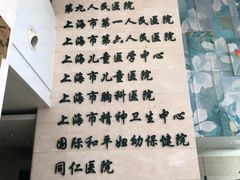 第九人民医院
上海市第一人民医院
上海市第六人民医院
上海儿童医学中心
上海市儿童医院
上海市胸科医院
上海市精神卫生中心
国际和平妇幼保健院
同仁医院